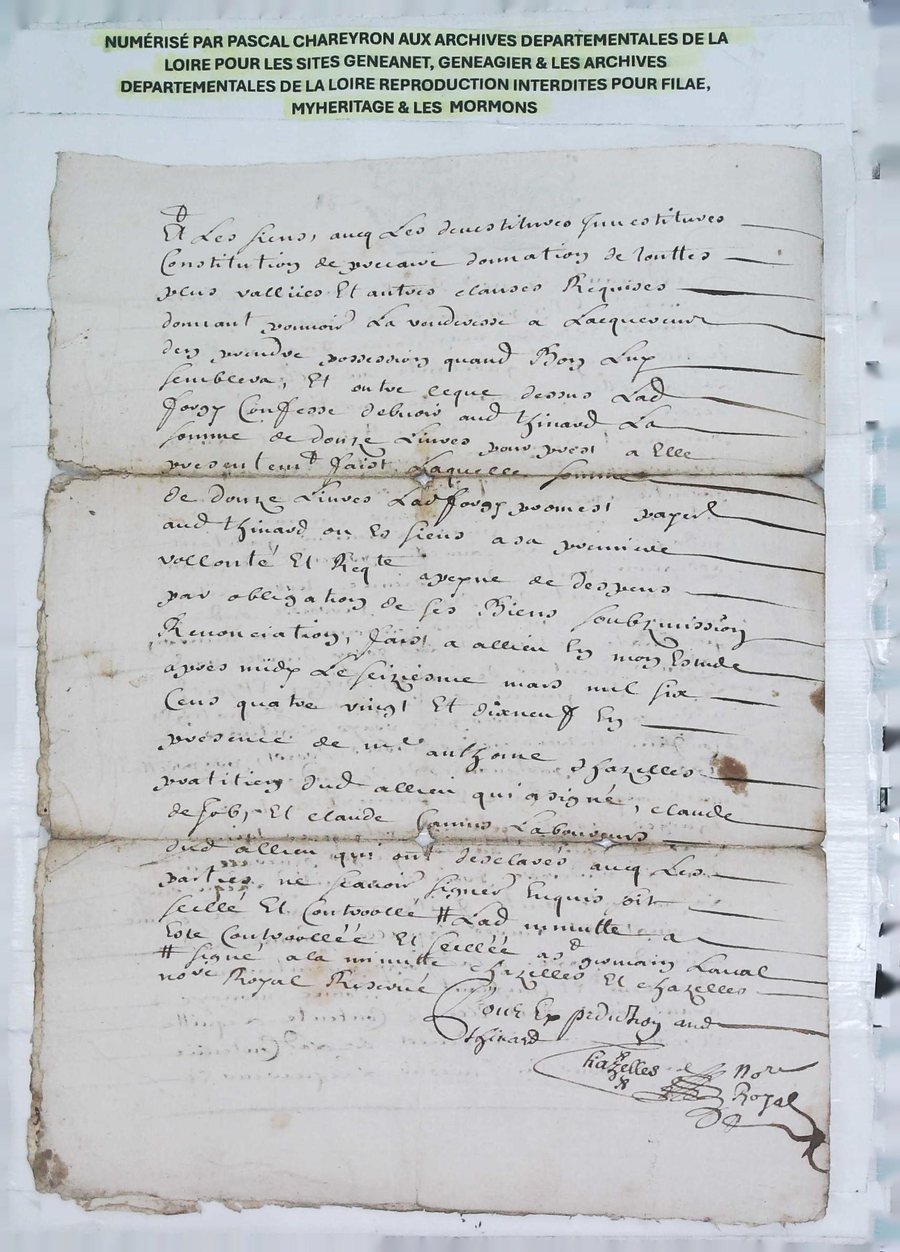 NUMÉRISÉ PAR PASCAL CHAREYRON AUX ARCHIVES DEPARTEMENTALES DE LA
LOIRE POUR LES SITES GENEANET, GENEAGIER & LES ARCHIVES
DEPARTEMENTALES DE LA LOIRE REPRODUCTION INTERDITES POUR FILAE,
MYHERITAGE & LES MORMONS
Et Les siens, avcq Les devestitures Investitures
Constitution de precaire donnation de touttes
plus vallües Et autres clauses Requises
donnant pouvoir La venderesse a Lacquereur
den prendre possession quand Bon Luy
semblera, Et outre ceque dessus Lad
forgy Confesse debvoir aud thinard La
somme de douze Livres pour prest a Elle
presentemt faict Laquelle somme
de douze Livres Lad forgy promest payer
aud thinard ou Es siens a sa premiere
vollonté Et Reqte apeyne de despens
par obligation de ses Biens soubzmission
Renonciation, faict a allieu En mon Estude
apres midy Le seiziesme mars mil six
Cens quatre vingt Et dixneuf En
presence de me anthoine chazelles
pratitien dud allieu qui a signé, claude
de Et claude Camus Laboureurs
dud allieu qui ont desclarés avcq Les
parties ne scavoir signer Enquis Soit
seellé Et Controollé # Lad minutte a
Esté Controolléé Et seelléé aud germain Laval
# signé a la minutte chazelles Et chazelles
nore Royal Reservé
Pour Expedition aud
thinard
Chazelles Nore
Royal